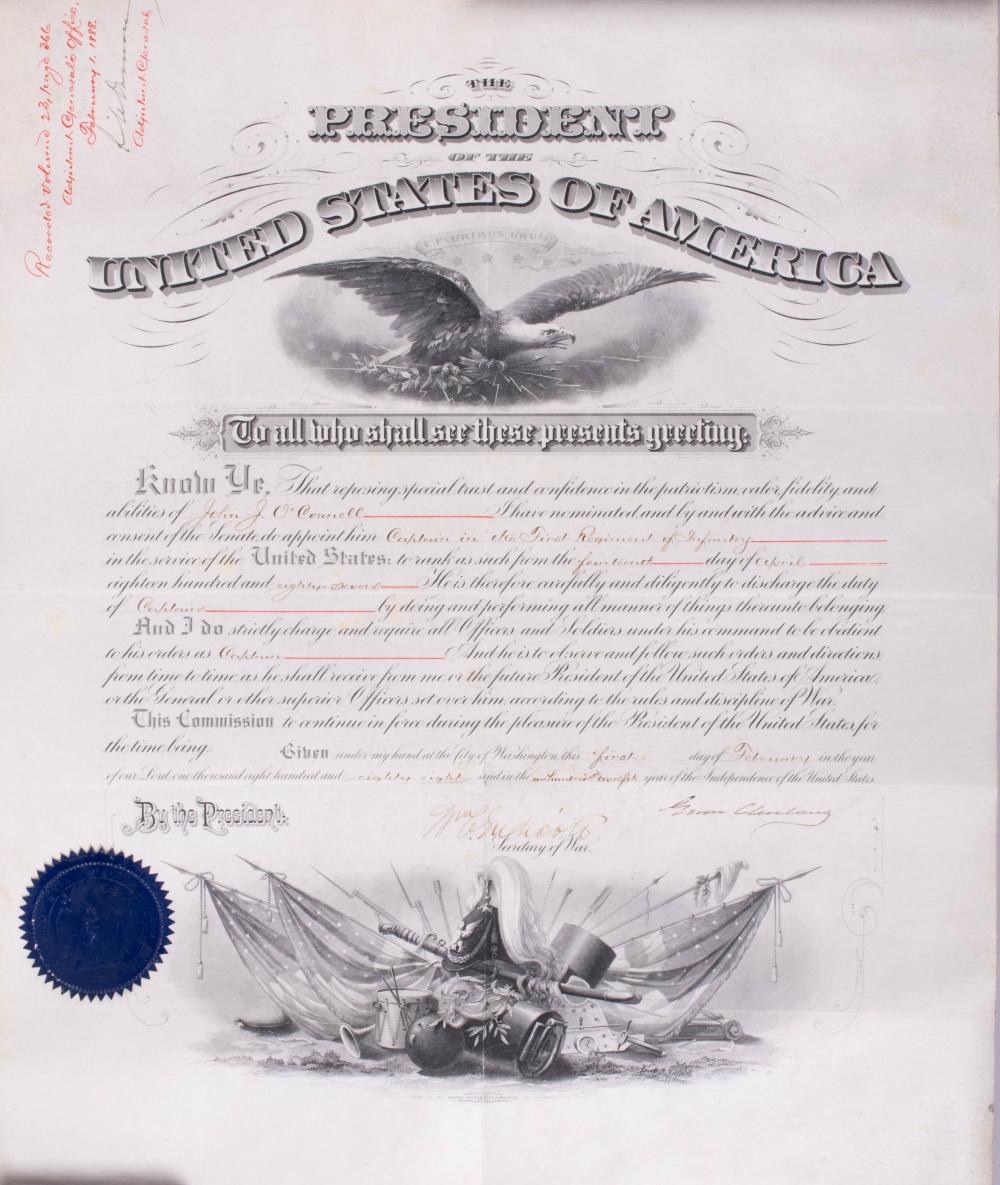 Recorded Volume 23, page 366
Adjutant General's Office,
February 1. 1888.
Adjutant General
THE
PRESIDENT
OF THE
UNITED STATES OF AMERICA
E PLURIBUS UNUM
To all who shall see these presents greeting:
Know Ye, That reposing special trust and confidence in the patriotism, valor, fidelity, and
abilities of John J. O'Connell I have nominated, and by and with the advice and
consent of the Senate, do appoint him Captain in the First Regiment of Infantry
in the service of the United States: to rank as such from the fourteenth day of April
eighteen hundred and eighty-seven He is therefore carefully and diligently to discharge the duty
of Captain by doing and performing all manner of things thereunto belonging.
And I do strictly charge and require all Officers and Soldiers under his command to be obedient
to his orders as Captain And he is to observe and follow such orders and directions,
from time to time, as he shall receive from me, or the future President of the United States of America,
or the General or other superior Officers set over him, according to the rules and discipline of War.
This Commission to continue in force during the pleasure of the President of the United States, for
the time being. Given under my hand at the City of Washington, this first day of February in the year
of our Lord one thousand eight hundred and eighty-eight and in the one hundred &amp; twelfth year of the Independence of the United States.
By the President:
Grover Cleveland
Wm C. Endicott
Secretary of War.